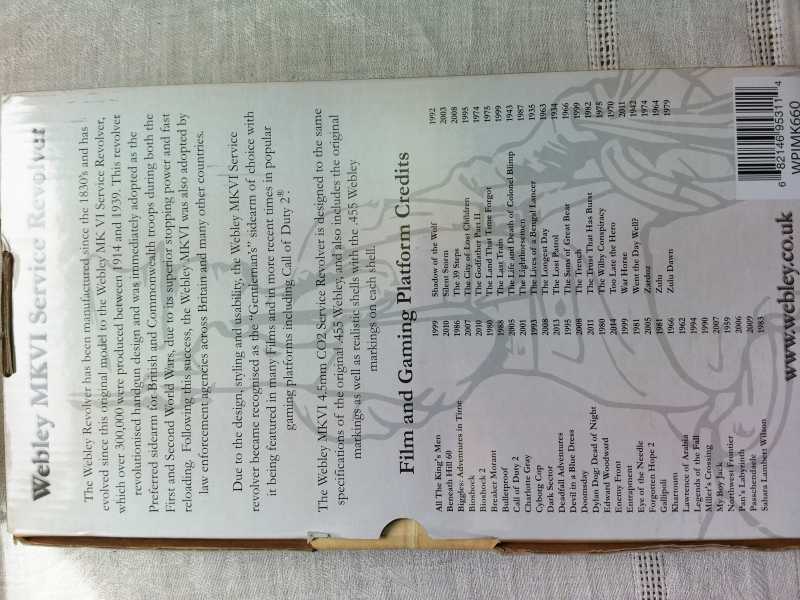 Webley MKVI Service Revolver
The Webley Revolver has been manufactured since the 1830's and has
evolved since this original model to the Webley MK VI Service Revolver,
which over 300,000 were produced between 1914 and 1939. This revolver
revolutionised handgun design and was immediately adopted as the
Preferred sidearm for British and Commonwealth troops during both the
First and Second World Wars, due to its superior stopping power and fast
reloading. Following this success, the Webley MKVI was also adopted by
law enforcement agencies across Britain and many other countries.
Due to the design, styling and usability, the Webley MKVI Service
revolver became recognised as the "Gentleman's" sidearm of choice with
it being featured in many Films and in more recent times in popular
gaming platforms including Call of Duty 2®.
The Webley MKVI 4.5mm CO2 Service Revolver is designed to the same
specifications of the original .455 Webley, and also includes the original
markings as well as realistic shells with the .455 Webley
markings on each shell.
Film and Gaming Platform Credits
All The King's Men 1999
Beneath Hill 60 2010
Biggles: Adventures in Time 1986
Bioshock 2007
Bioshock 2 2010
Breaker Morant 1980
Bulletproof 1988
Call of Duty 2 2005
Charlotte Gray 2001
Cyborg Cop 1993
Dark Sector 2008
Deadfall Adventures 2013
Devil in a Blue Dress 1995
Doomsday 2008
Dylan Dog: Dead of Night 2011
Edward Woodward 1980
Enemy Front 2014
Entrapment 1999
Eye of the Needle 1981
Forgotten Hope 2 2005
Gallipoli 1981
Khartoum 1966
Lawrence of Arabia 1962
Legends of the Fall 1994
Miller's Crossing 1990
My Boy Jack 2007
Northwest Frontier 1959
Pan's Labyrinth 2006
Passchendaele 2009
Sahara Lambert Wilson 1983
Shadow of the Wolf 1992
Silent Storm 2003
The 39 Steps 2008
The City of Lost Children 1995
The Godfather Part II 1974
The Land That Time Forgot 1975
The Last Train 1999
The Life and Death of Colonel Blimp 1943
The Lighthorsemen 1987
The Lives of a Bengal Lancer 1935
The Longest Day 1963
The Lost Patrol 1934
The Suns of Great Bear 1966
The Trench 1999
The Truth That Has Burst 1982
The Wilby Conspiracy 1975
Too Late the Hero 1970
War Horse 2011
Went the Day Well? 1942
Zardoz 1974
Zulu 1964
Zulu Dawn 1979
www.webley.co.uk
6 82146 95311 4
WPIMK660